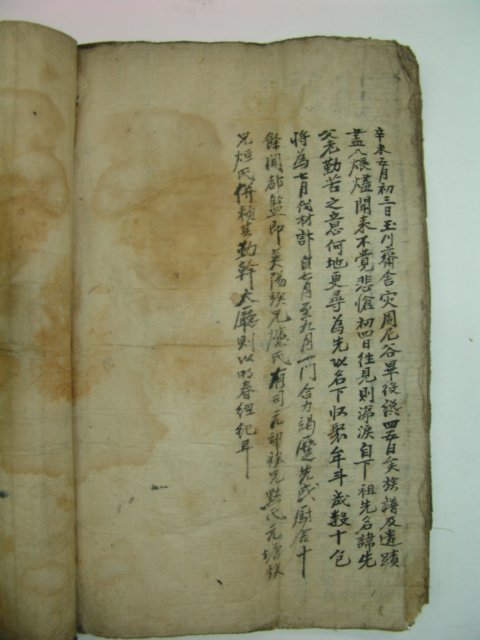 辛未五月初三日玉川齋舍灾周尼谷畢役後四五日矣族譜及遺蹟
盡入煨燼聞来不覺悲愴初四日往見則涕淚自下祖先名諱先
父老勤苦之意何地更尋為先以名下收聚年斗歲數十包
將為七月伐材計自七月至九月一門合力竭蹶先成廚舍十
餘間都監即英陽族兄氏有司元印族兄點氏元塘族
兄烜氏併賴其勤幹大廳則以明春經紀耳